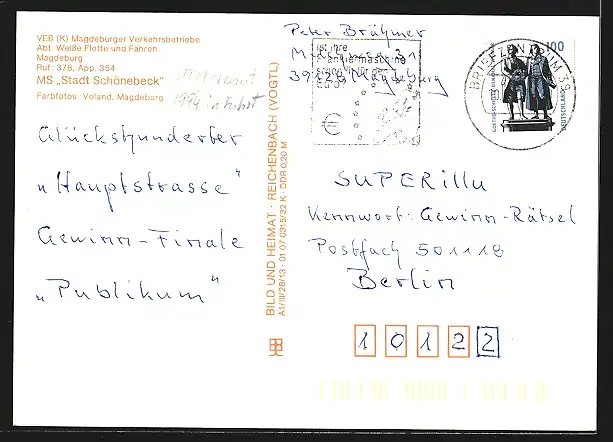 VEB (K) Magdeburger Verkehrsbetriebe
Abt. Weiße Flotte und Fähren
Magdeburg
Ruf: 378, App. 354
MS „Stadt Schönebeck"
Farbfotos: Voland, Magdeburg
1994
Glückshunderter
„Hauptstrasse"
Gewinn-Finale
„Publikum"
BILD UND HEIMAT · REICHENBACH (VOGTL)
A1/III/26/13 · 01 07 0315/32 K · DDR 0,20 M
Peter Brähmer
31
Magdeburg
ist ihre
Frankiermaschine
€
BRIEFZENTRUM 39
100
DEUTSCHLAND
SUPERillu
Kennwort: Gewinn-Rätsel
Postfach 501118
Berlin
10122